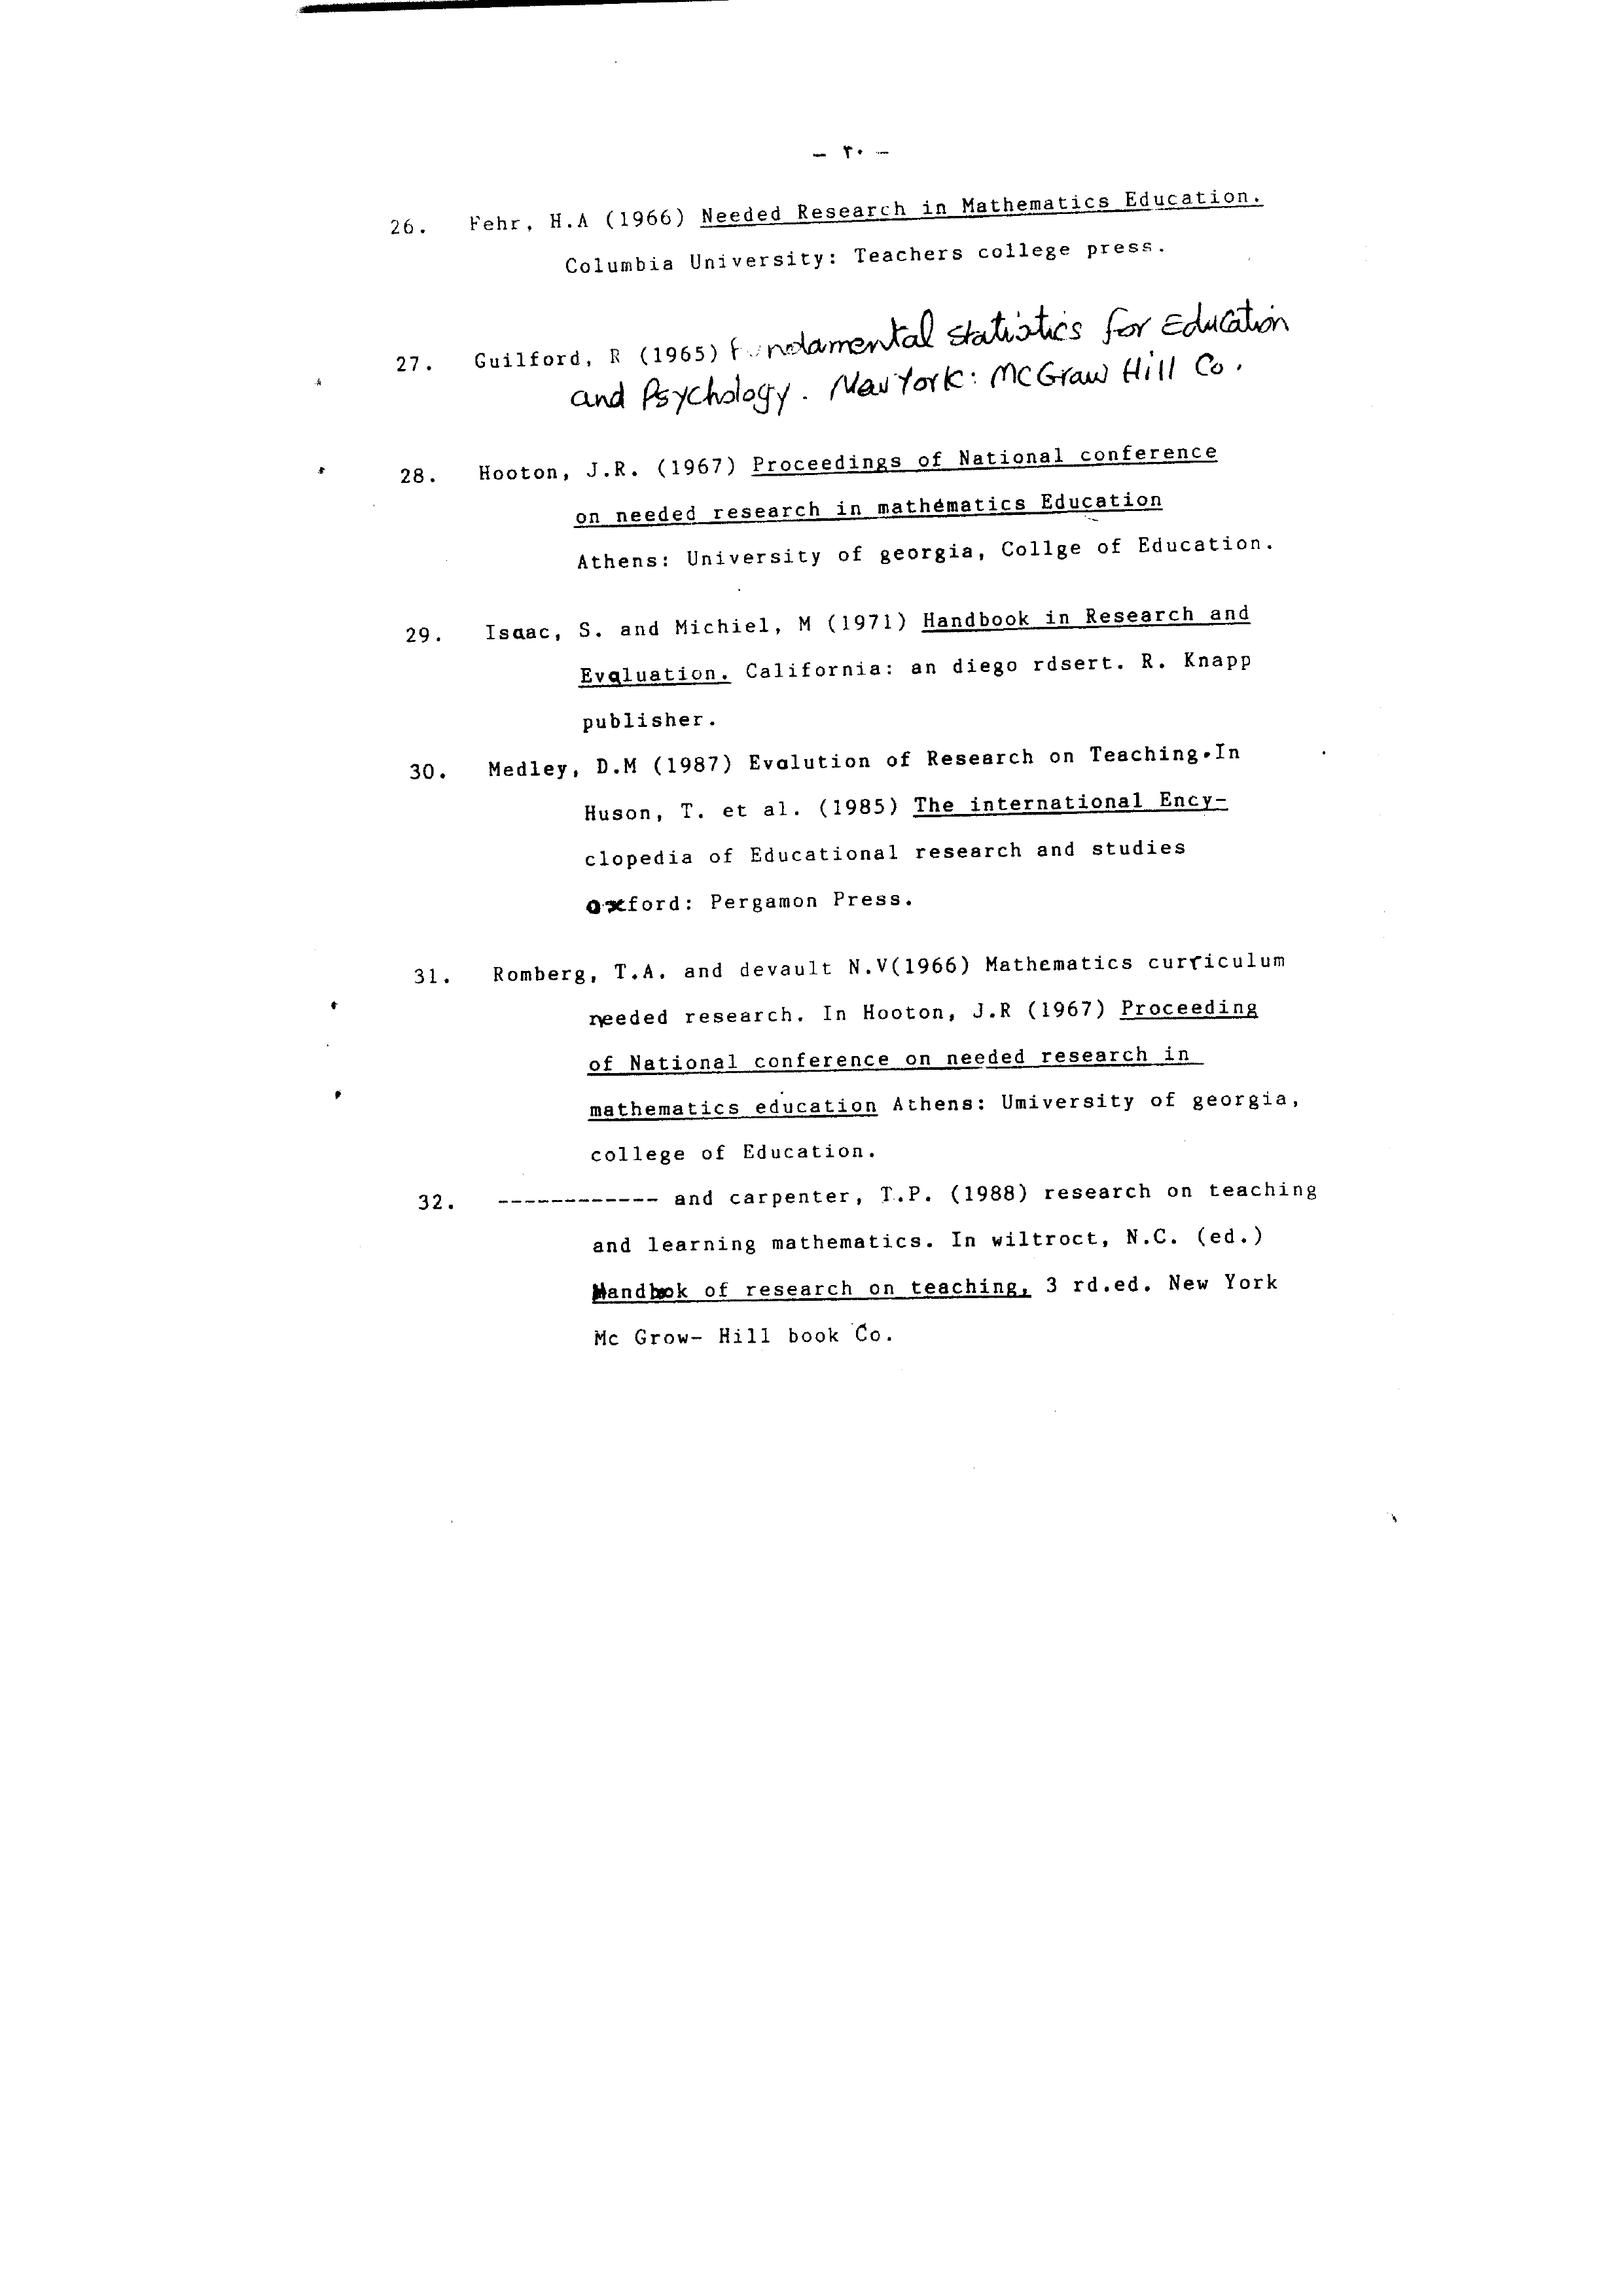 - ٢٠ -
26. Fehr, H.A (1966) Needed Research in Mathematics Education.
Columbia University: Teachers college press.
27. Guilford, R (1965) fundamental statistics for Education
and Psychology. New York: McGraw Hill Co.
28. Hooton, J.R. (1967) Proceedings of National conference
on needed research in mathematics Education
Athens: University of georgia, Collge of Education.
29. Isaac, S. and Michiel, M (1971) Handbook in Research and
Evaluation. California: an diego rdsert. R. Knapp
publisher.
30. Medley, D.M (1987) Evolution of Research on Teaching.In
Huson, T. et al. (1985) The international Ency-
clopedia of Educational research and studies
oxford: Pergamon Press.
31. Romberg, T.A. and devault N.V(1966) Mathematics curriculum
needed research. In Hooton, J.R (1967) Proceeding
of National conference on needed research in
mathematics education Athens: Umiversity of georgia,
college of Education.
32. ------------ and carpenter, T.P. (1988) research on teaching
and learning mathematics. In wiltroct, N.C. (ed.)
Handbok of research on teaching, 3 rd.ed. New York
Mc Grow- Hill book Co.